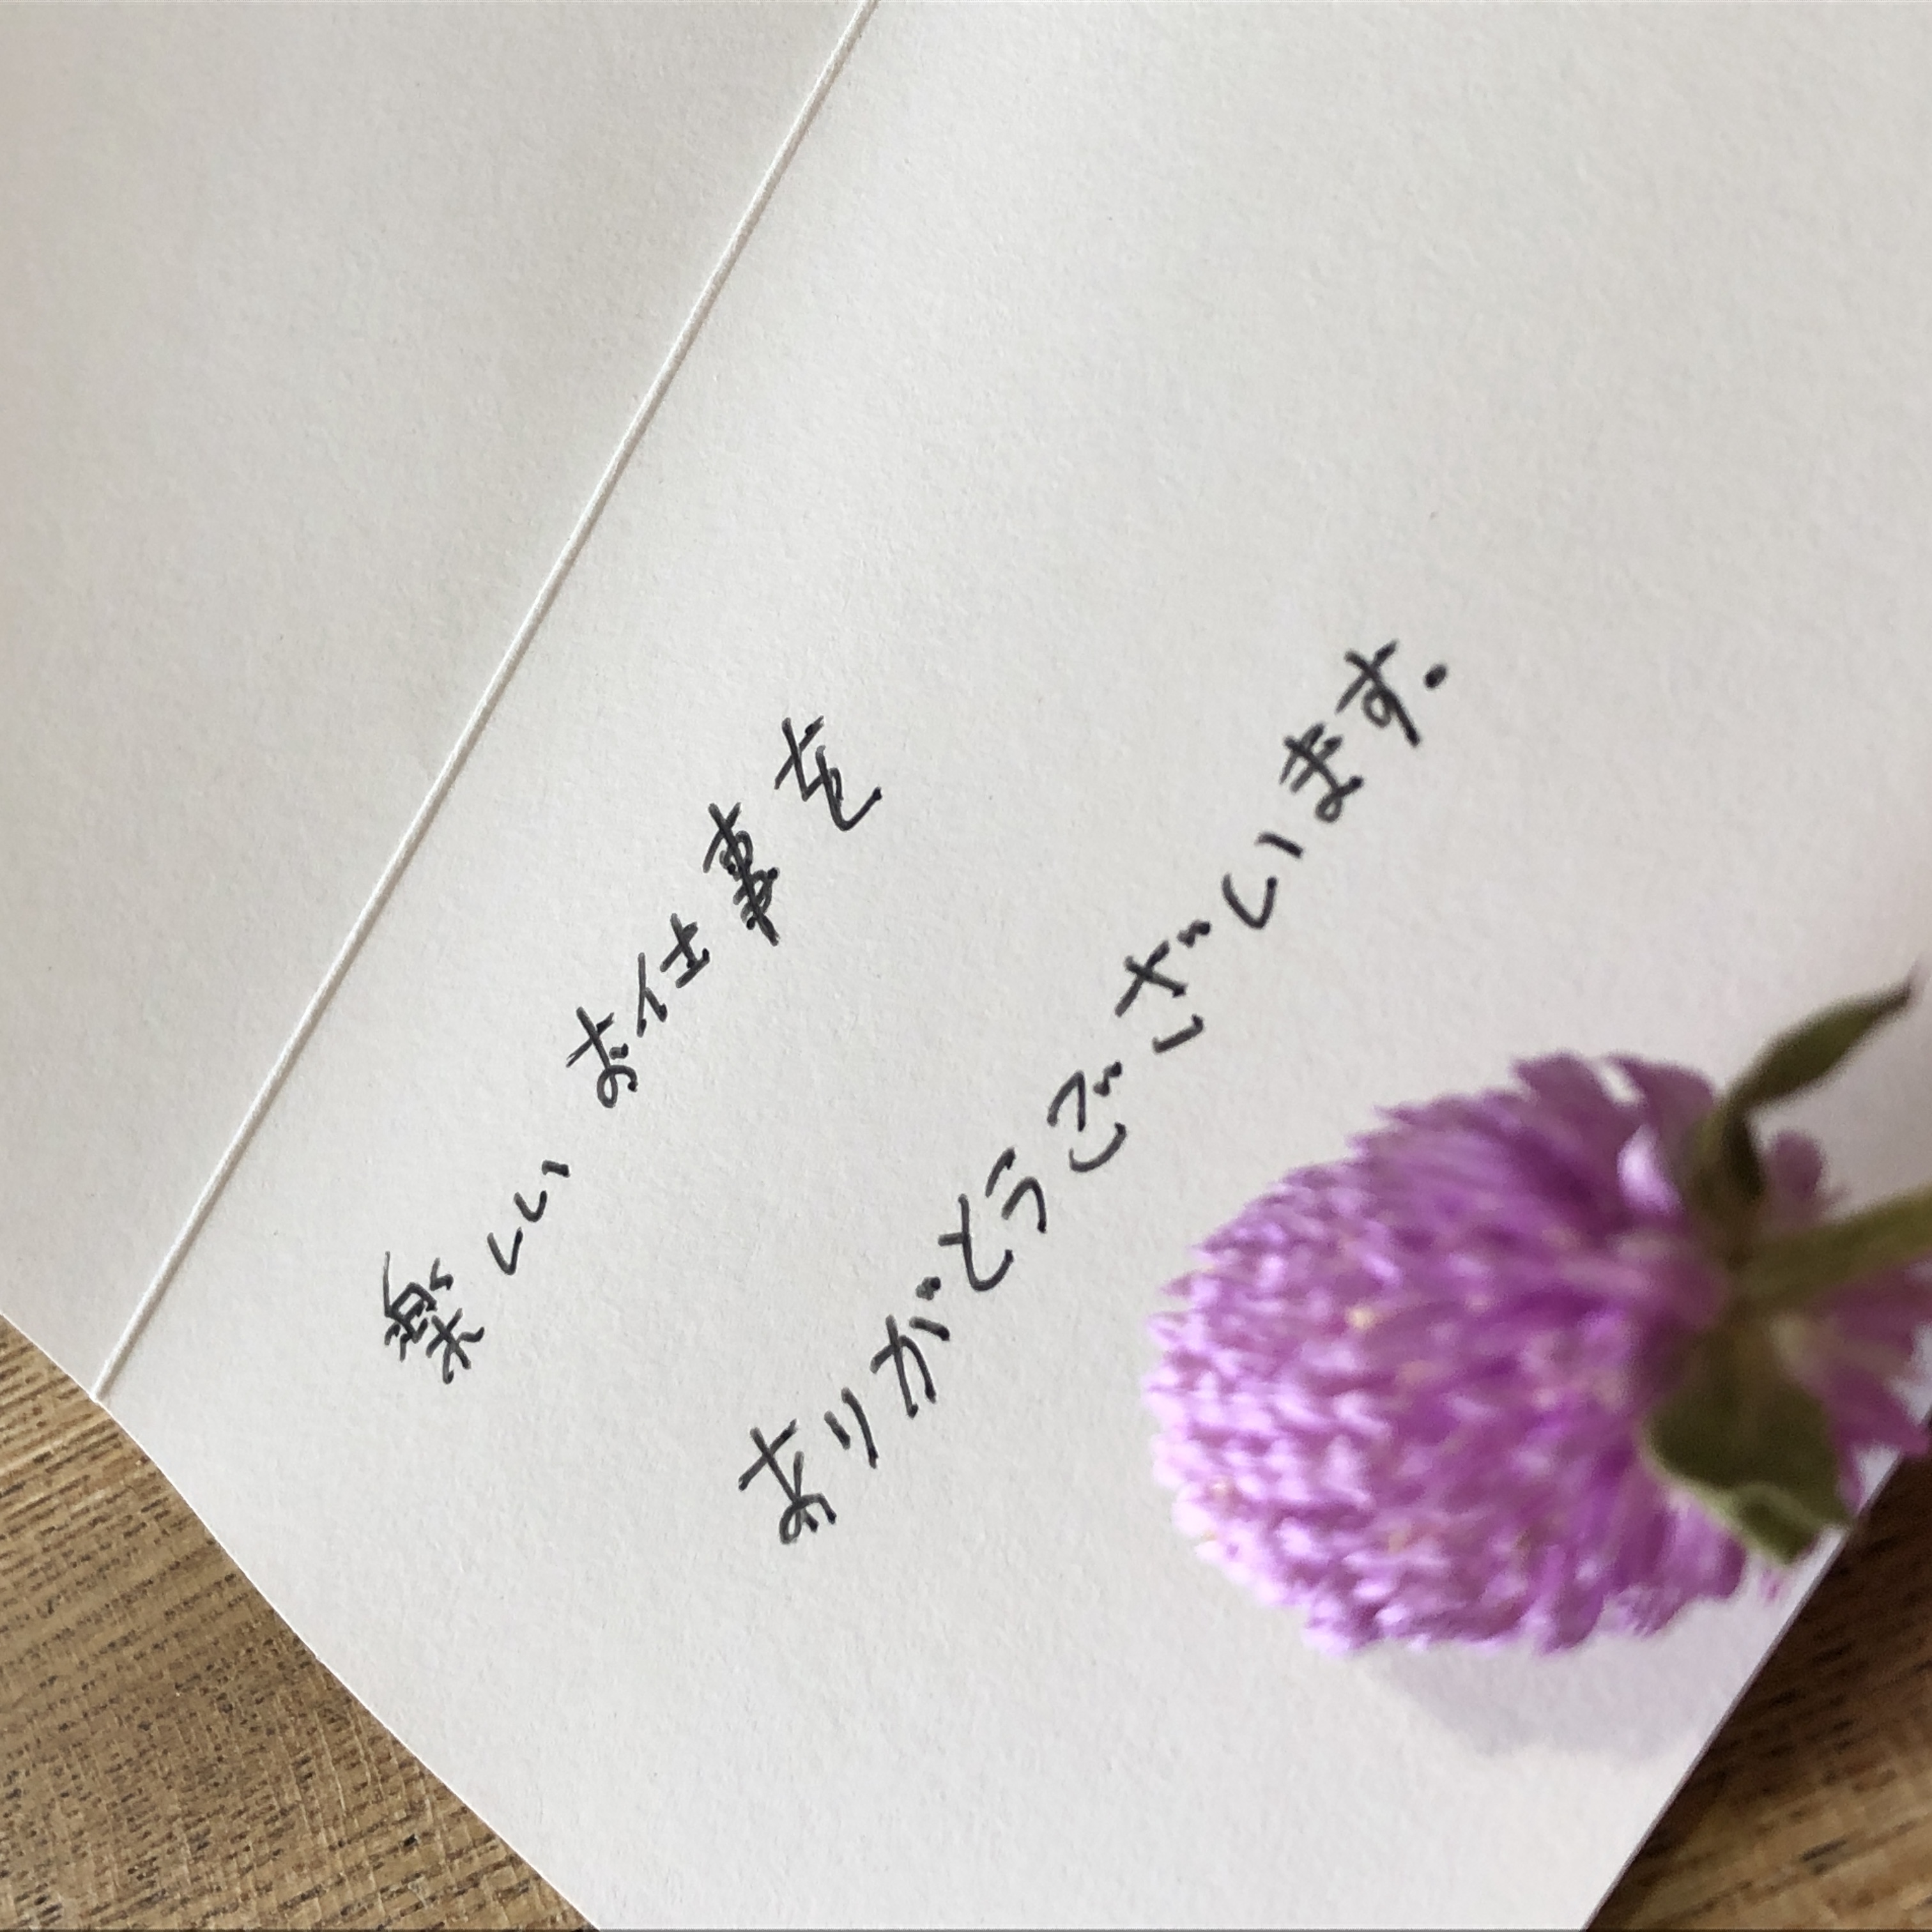 楽しい お仕事を
ありがとうございます.